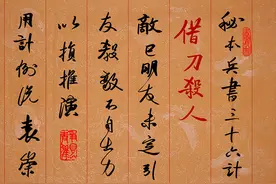 秘本兵書三十六計
借刀殺人
敵已明友未定引
友殺敵不自出力
以損推演
用計例说袁崇